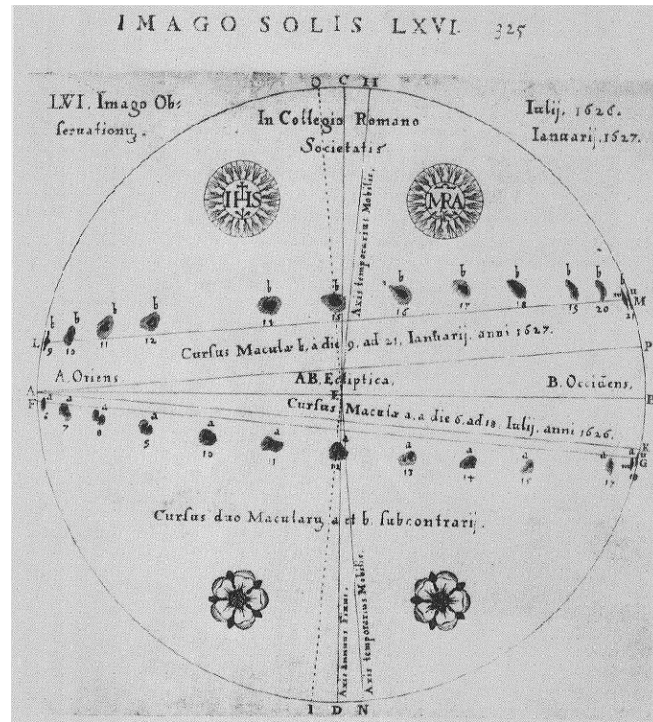 IMAGO SOLIS LXVI. 325
O C H
LVI. Imago Ob-
seruationũ.
In Collegio Romano
Societatis
Iulij. 1626.
Ianuarij. 1627.
IHS
MRA
Axis temporarius Mobilis.
b b b b b b b b b b b b
L 9 10 11 12 13 15 16 17 18 19 20 21 M
Cursus Maculæ b, à die 9. ad 21. Ianuarij. anni 1627.
P
A. Oriens
AB. Ecliptica.
B. Occidens.
A E B
F
Cursus Maculæ a. a die 6. ad 18. Iulij. anni 1626.
a a a a a a a a a a a a
6 7 8 9 10 11 12 13 14 15 17 18 G
Cursus duo Macularũ a et b. subcontrarij.
Axis annuus Fixus.
Axis temporarius Mobilis.
I D N